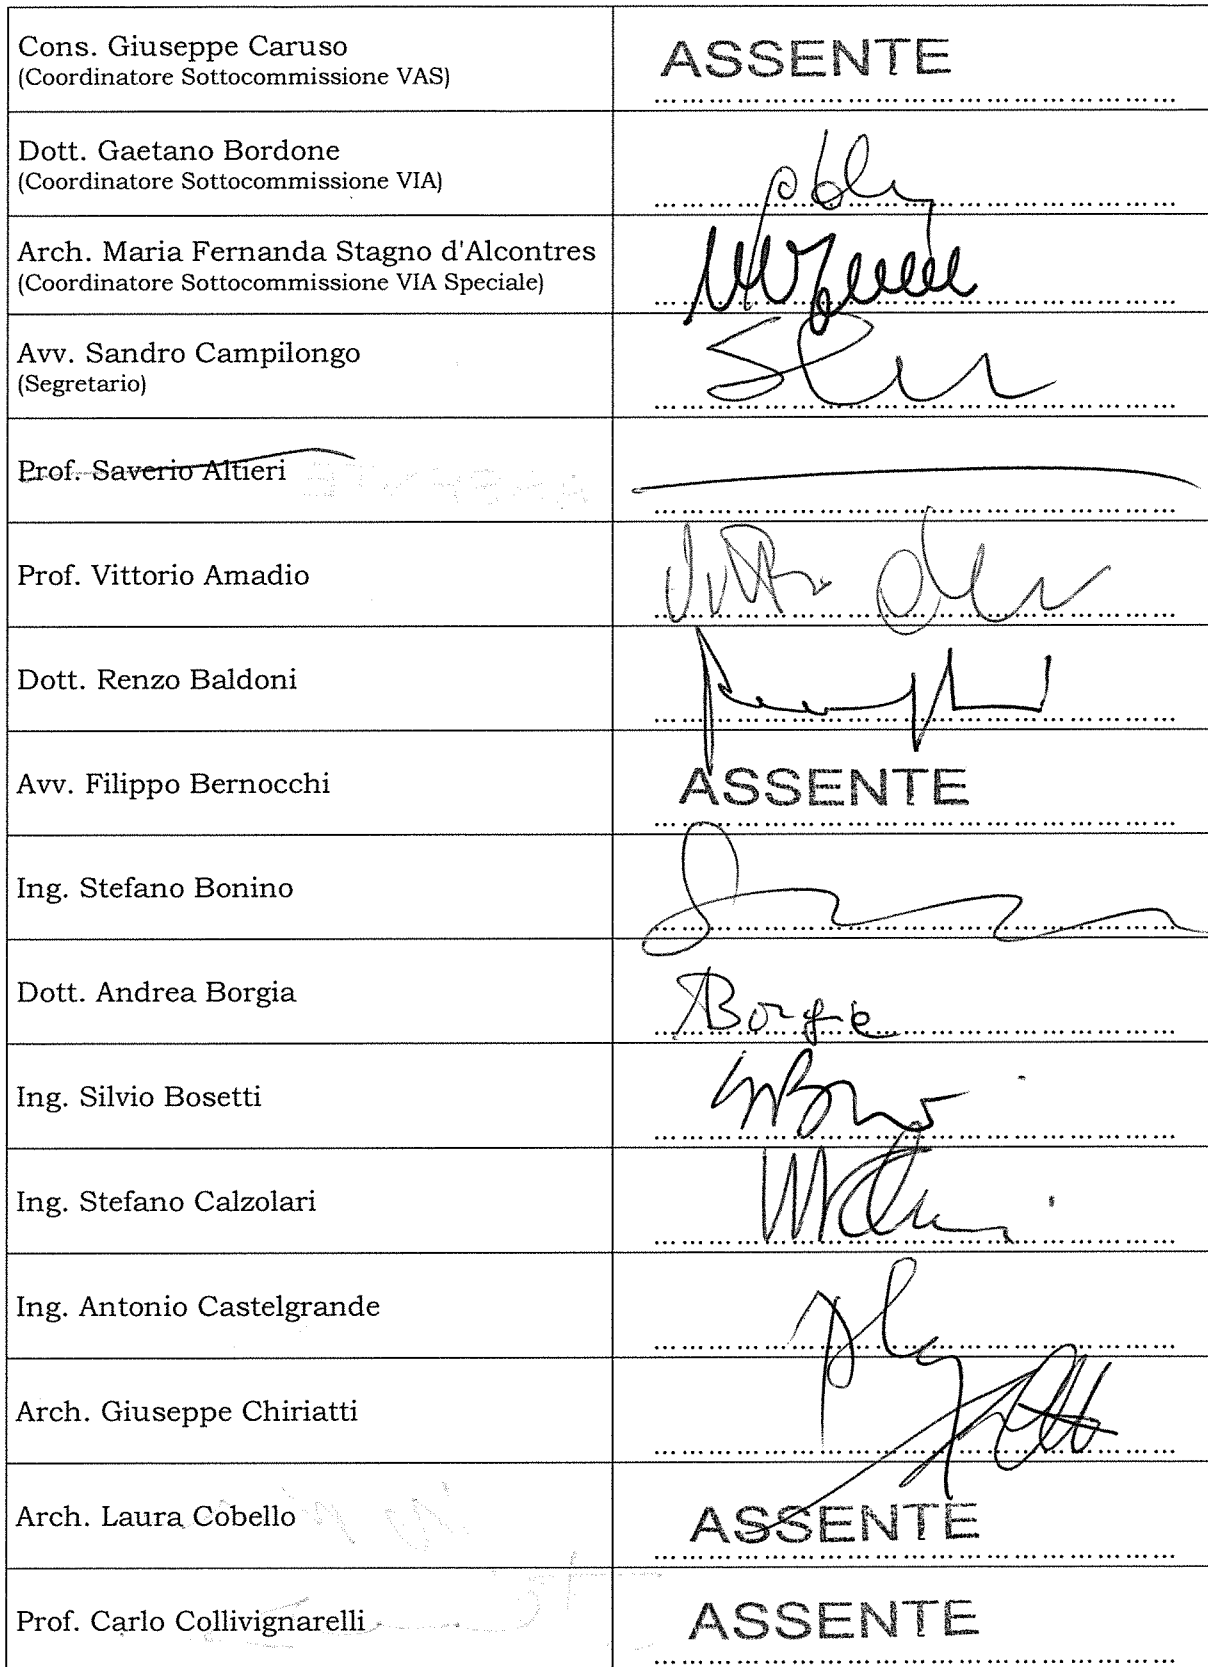 Cons. Giuseppe Caruso
(Coordinatore Sottocommissione VAS)
ASSENTE
Dott. Gaetano Bordone
(Coordinatore Sottocommissione VIA)
Arch. Maria Fernanda Stagno d'Alcontres
(Coordinatore Sottocommissione VIA Speciale)
Avv. Sandro Campilongo
(Segretario)
Prof. Saverio Altieri
Prof. Vittorio Amadio
Dott. Renzo Baldoni
Avv. Filippo Bernocchi
ASSENTE
Ing. Stefano Bonino
Dott. Andrea Borgia
ABorgia
Ing. Silvio Bosetti
Ing. Stefano Calzolari
Ing. Antonio Castelgrande
Arch. Giuseppe Chiriatti
Arch. Laura Cobello
ASSENTE
Prof. Carlo Collivignarelli
ASSENTE